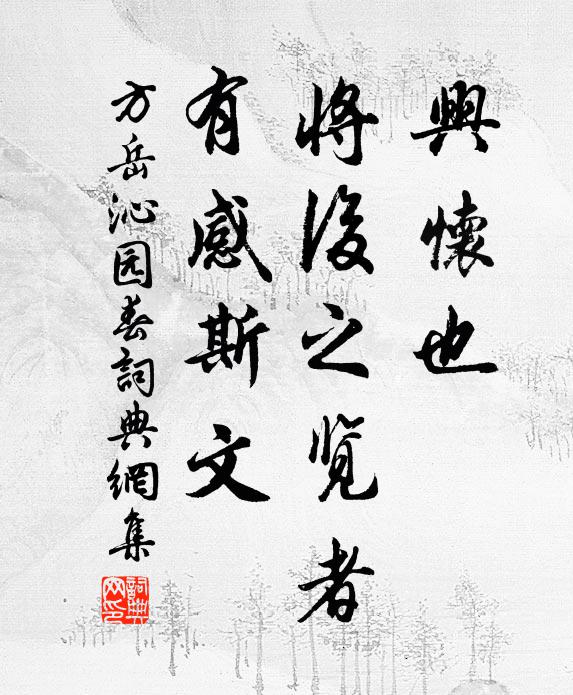 興懷也
將後之览者
有感斯文
方岳沁园春詞典網集
詞典网印